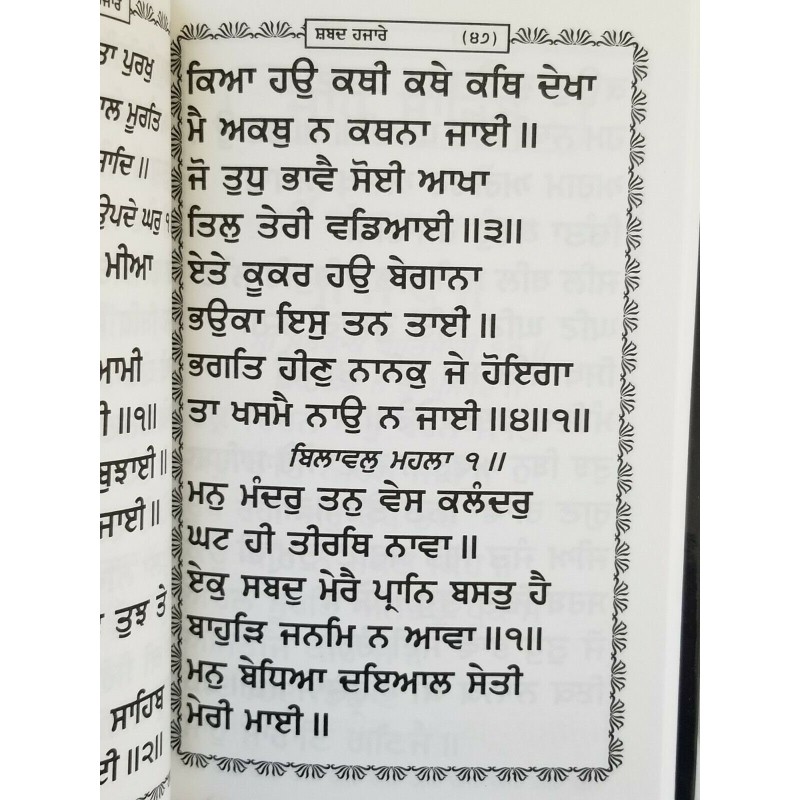 ਜਾਰੇ
ਤਾ ਪੁਰਖੁ
ਾਲ ਮੂਰਤਿ
ਜਾਦਿ॥
ਉਪਦੇ ਘਰੁ ੧
ਮੀਆ
ਆਮੀ
ੀ॥੧॥
ਬੁਝਾਈ॥
ਜਾਈ॥
ਤੁਝ ਤੇ
ਸਾਹਿਬ
ਈ॥੨॥
ਸ਼ਬਦ ਹਜਾਰੇ (੪੭)
ਕਿਆ ਹਉ ਕਥੀ ਕਥੇ ਕਥਿ ਦੇਖਾ
ਮੈ ਅਕਥੁ ਨ ਕਥਨਾ ਜਾਈ॥
ਜੋ ਤੁਧੁ ਭਾਵੈ ਸੋਈ ਆਖਾ
ਤਿਲੁ ਤੇਰੀ ਵਡਿਆਈ॥੩॥
ਏਤੇ ਕੂਕਰ ਹਉ ਬੇਗਾਨਾ
ਭਉਕਾ ਇਸੁ ਤਨ ਤਾਈ॥
ਭਗਤਿ ਹੀਣੁ ਨਾਨਕੁ ਜੇ ਹੋਇਗਾ
ਤਾ ਖਸਮੈ ਨਾਉ ਨ ਜਾਈ॥੪॥੧॥
ਬਿਲਾਵਲੁ ਮਹਲਾ ੧॥
ਮਨੁ ਮੰਦਰੁ ਤਨੁ ਵੇਸ ਕਲੰਦਰੁ
ਘਟ ਹੀ ਤੀਰਥਿ ਨਾਵਾ॥
ਏਕੁ ਸਬਦੁ ਮੇਰੈ ਪ੍ਰਾਨਿ ਬਸਤੁ ਹੈ
ਬਾਹੁੜਿ ਜਨਮਿ ਨ ਆਵਾ॥੧॥
ਮਨੁ ਬੇਧਿਆ ਦਇਆਲ ਸੇਤੀ
ਮੇਰੀ ਮਾਈ॥